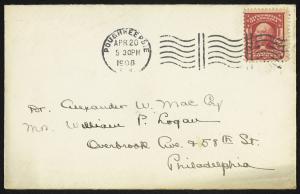 POUGHKEEPSIE
APR 20
5 30 PM
1908
Dr. Alexander W. Mac Coy
Mrs. William P. Logan
Overbrook Ave. & 58th St.
Philadelphia